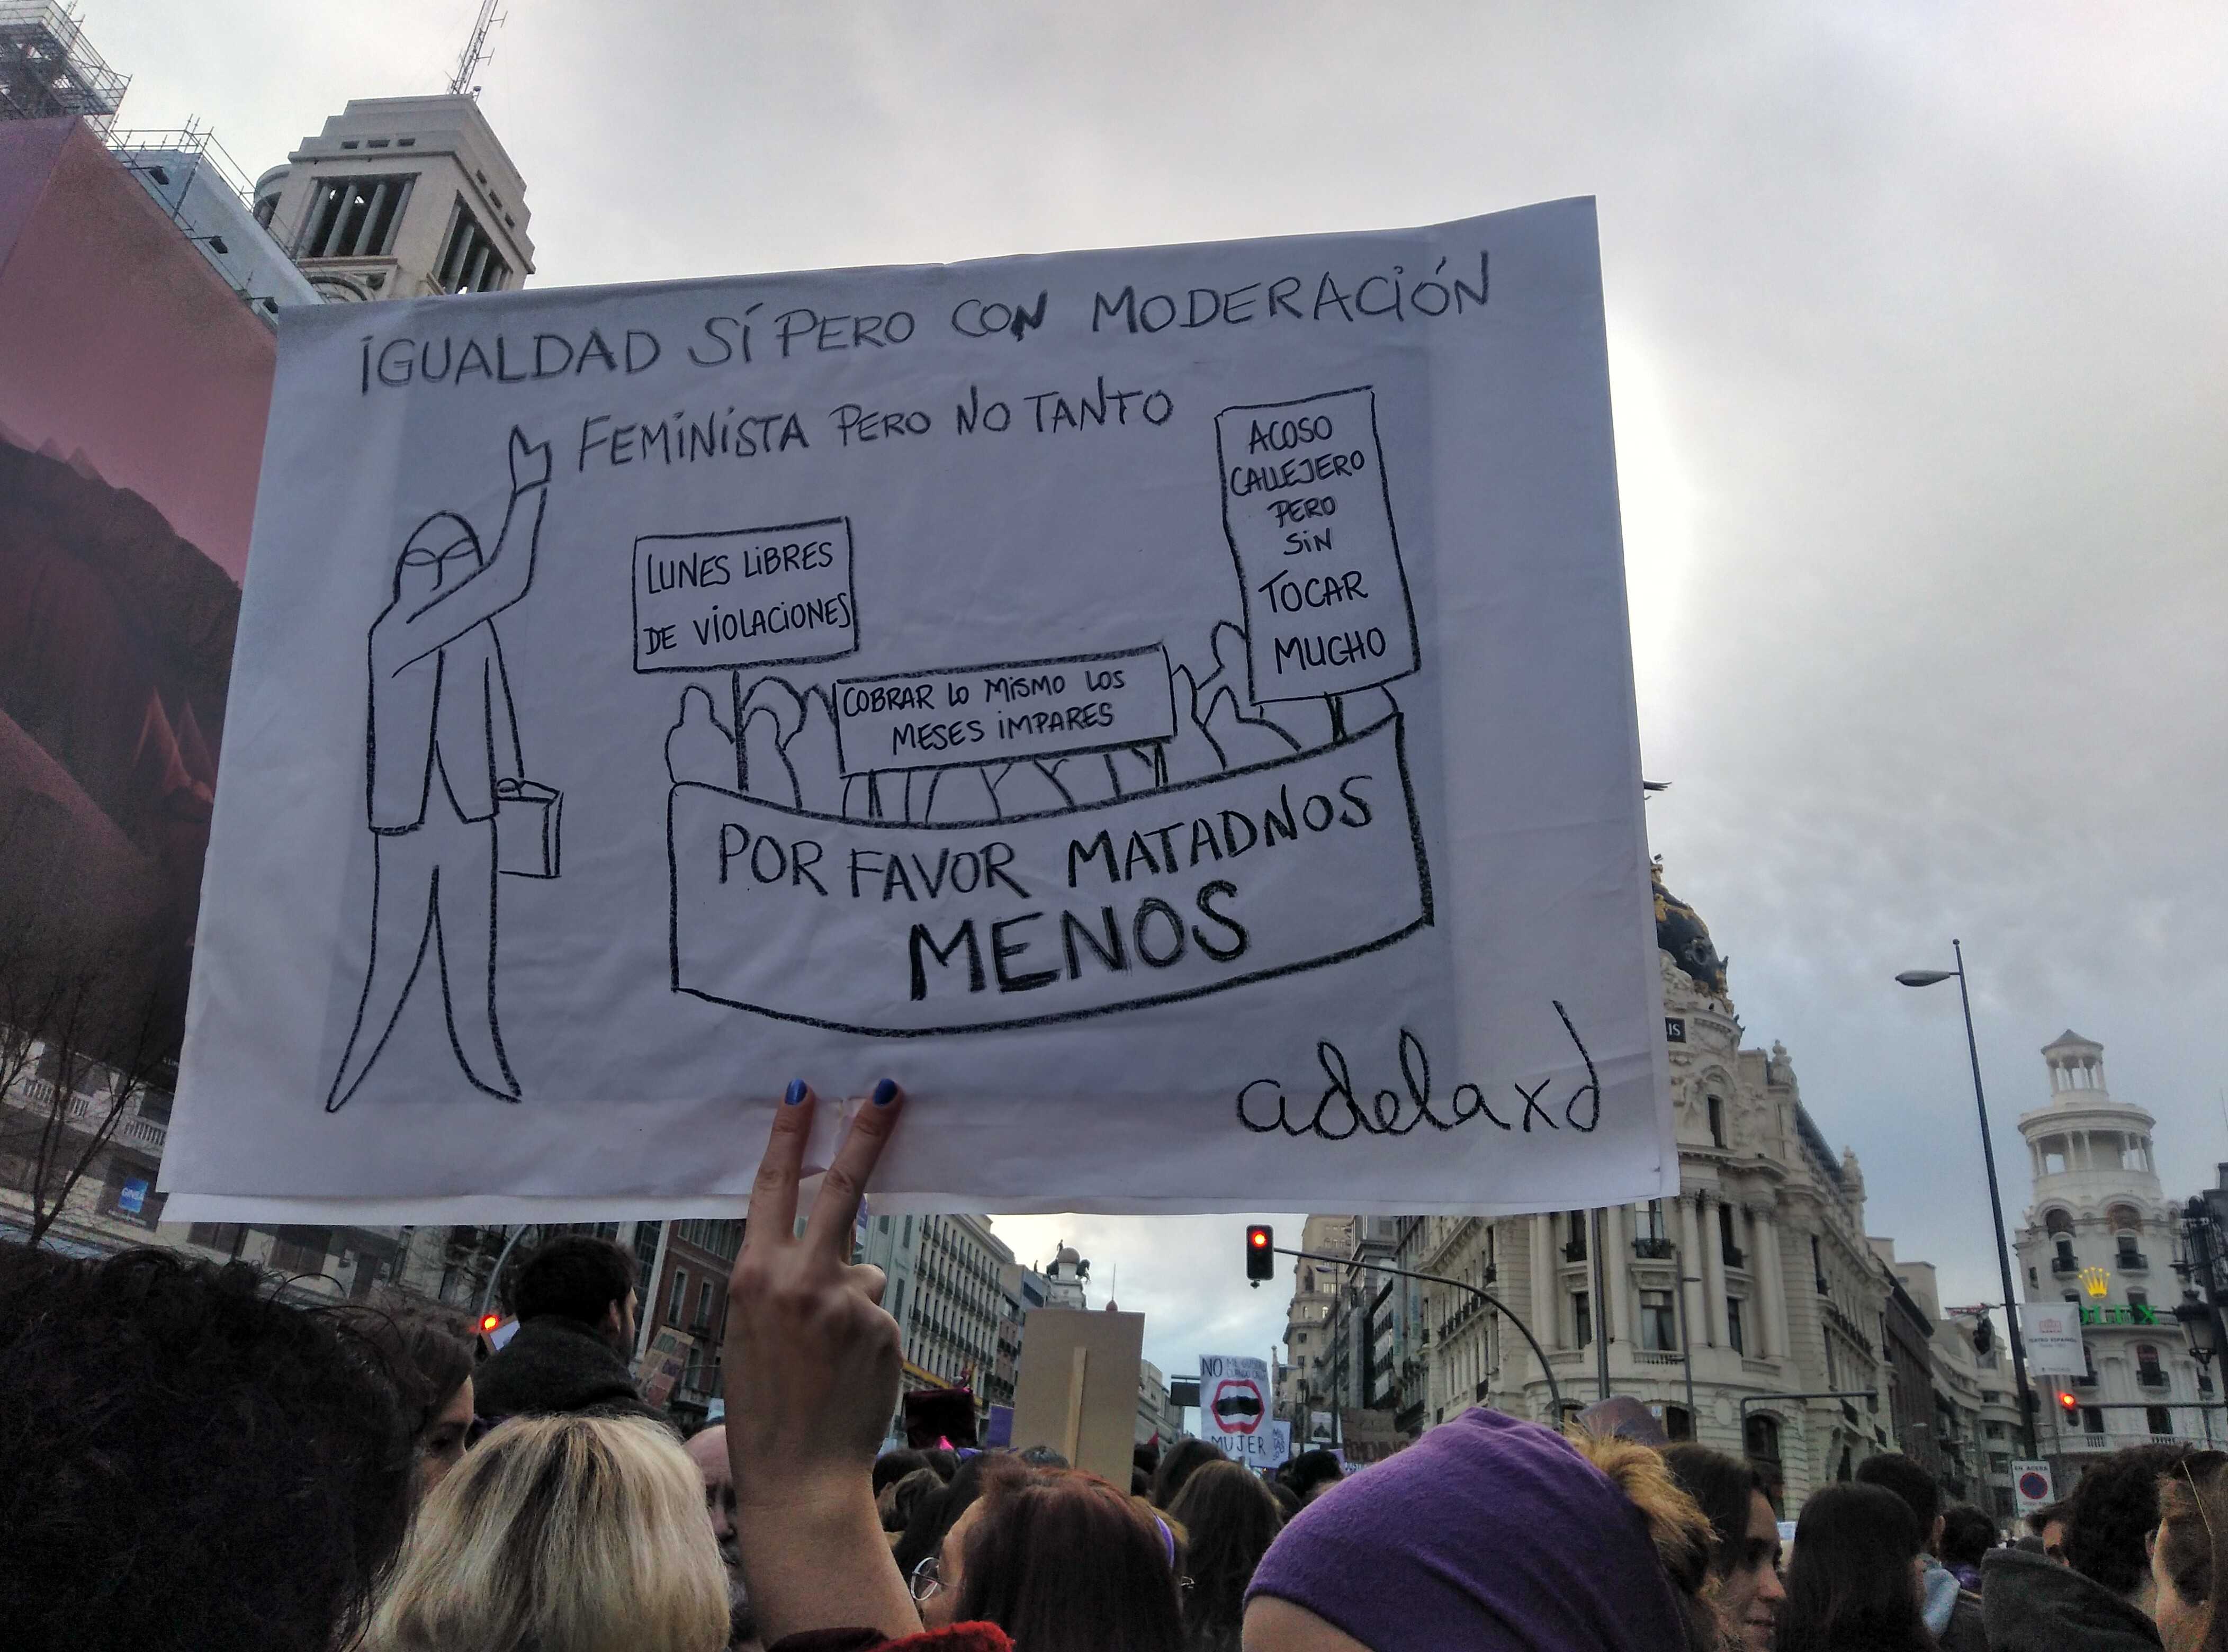 IGUALDAD SÍ PERO CON MODERACIÓN
FEMINISTA PERO NO TANTO
ACOSO
CALLEJERO
PERO
SIN
TOCAR
MUCHO
LUNES LIBRES
DE VIOLACIONES
COBRAR LO MISMO LOS
MESES IMPARES
POR FAVOR MATADNOS
MENOS
adelaxd
NO
MUJER
TEATRO ESPAÑOL